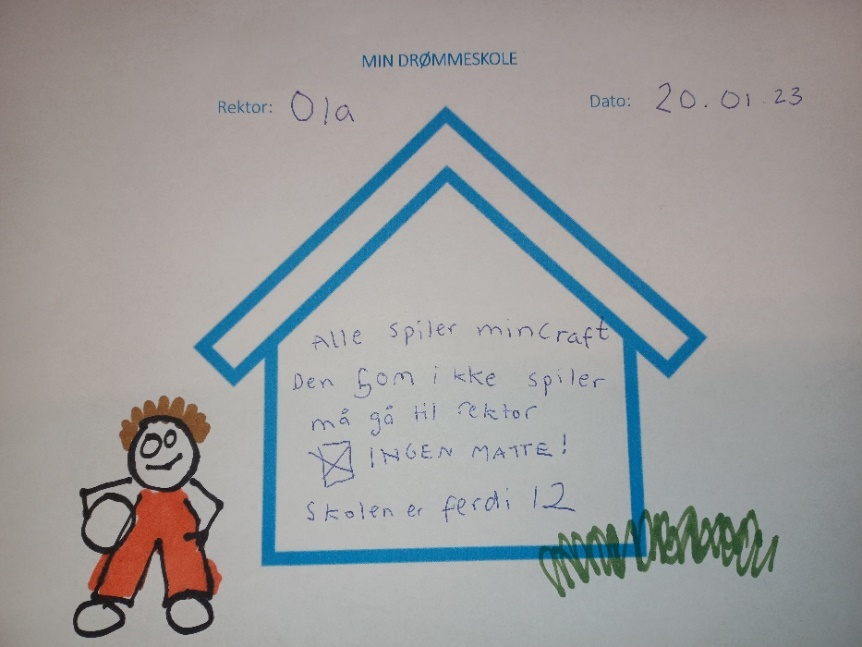 MIN DRØMMESKOLE
Rektor: Ola
Dato: 20.01.23
Alle spiler mincraft
Den som ikke spiler
må gå til rektor
INGEN MATTE!
Skolen er ferdi 12